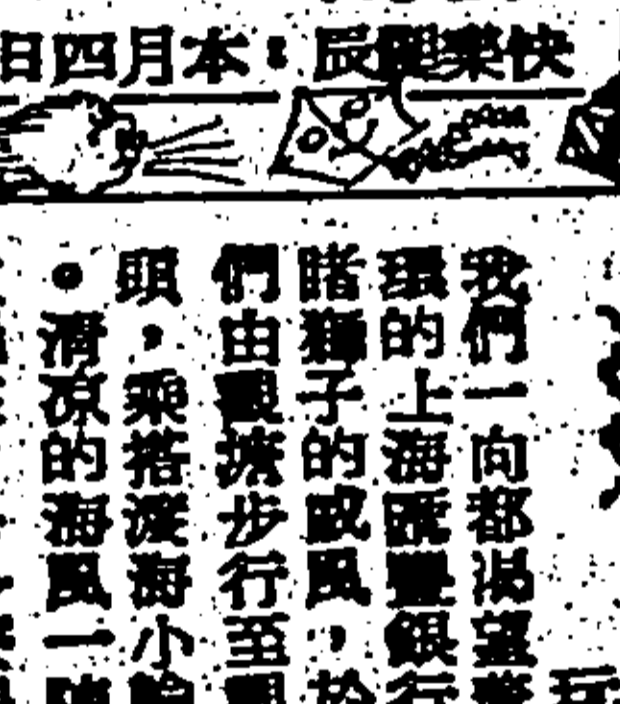 快樂辰：本月四日
我們一向都渴望
的上海匯豐銀行
睹獅子的威風，於
們由觀塘步行至
頭，乘搭渡海小輪
。清涼的海風一陣